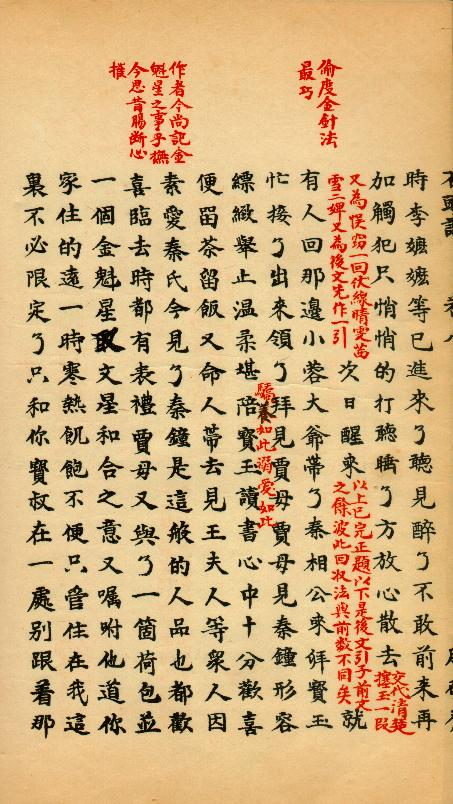 偷度金針法
最巧
作者今尚記金
魁星之事乎撫
今思昔腸断心
摧
時李嬤嬤等已進來了聽見醉了不敢前來再
加觸犯只悄悄的打聽睡了方放心散去
交代清楚
攆玉一段
又為悮窃一回伏線晴雯茜
雪二婢又為後文先作一引
次日醒來
以上已完正題以下是後文引子前文
之餘波此回收法與前数不同矣
就
有人回那邊小蓉大爺帶了秦相公來拜寳玉
忙接了出來領了拜見賈母賈母見秦鐘形容
縹緻舉止溫柔堪陪寳玉讀書心中十分歡喜
驕養如此溺愛如此
便畱茶留飯又命人帶去見王夫人等衆人因
素愛秦氏今見了秦鐘是這般的人品也都歡
喜臨去時都有表禮賈母又與了一箇荷包並
一個金魁星取文星和合之意又囑咐他道你
家住的遠一時寒熱飢飽不便只管住在我這
裏不必限定了只和你寳叔在一處别跟着那